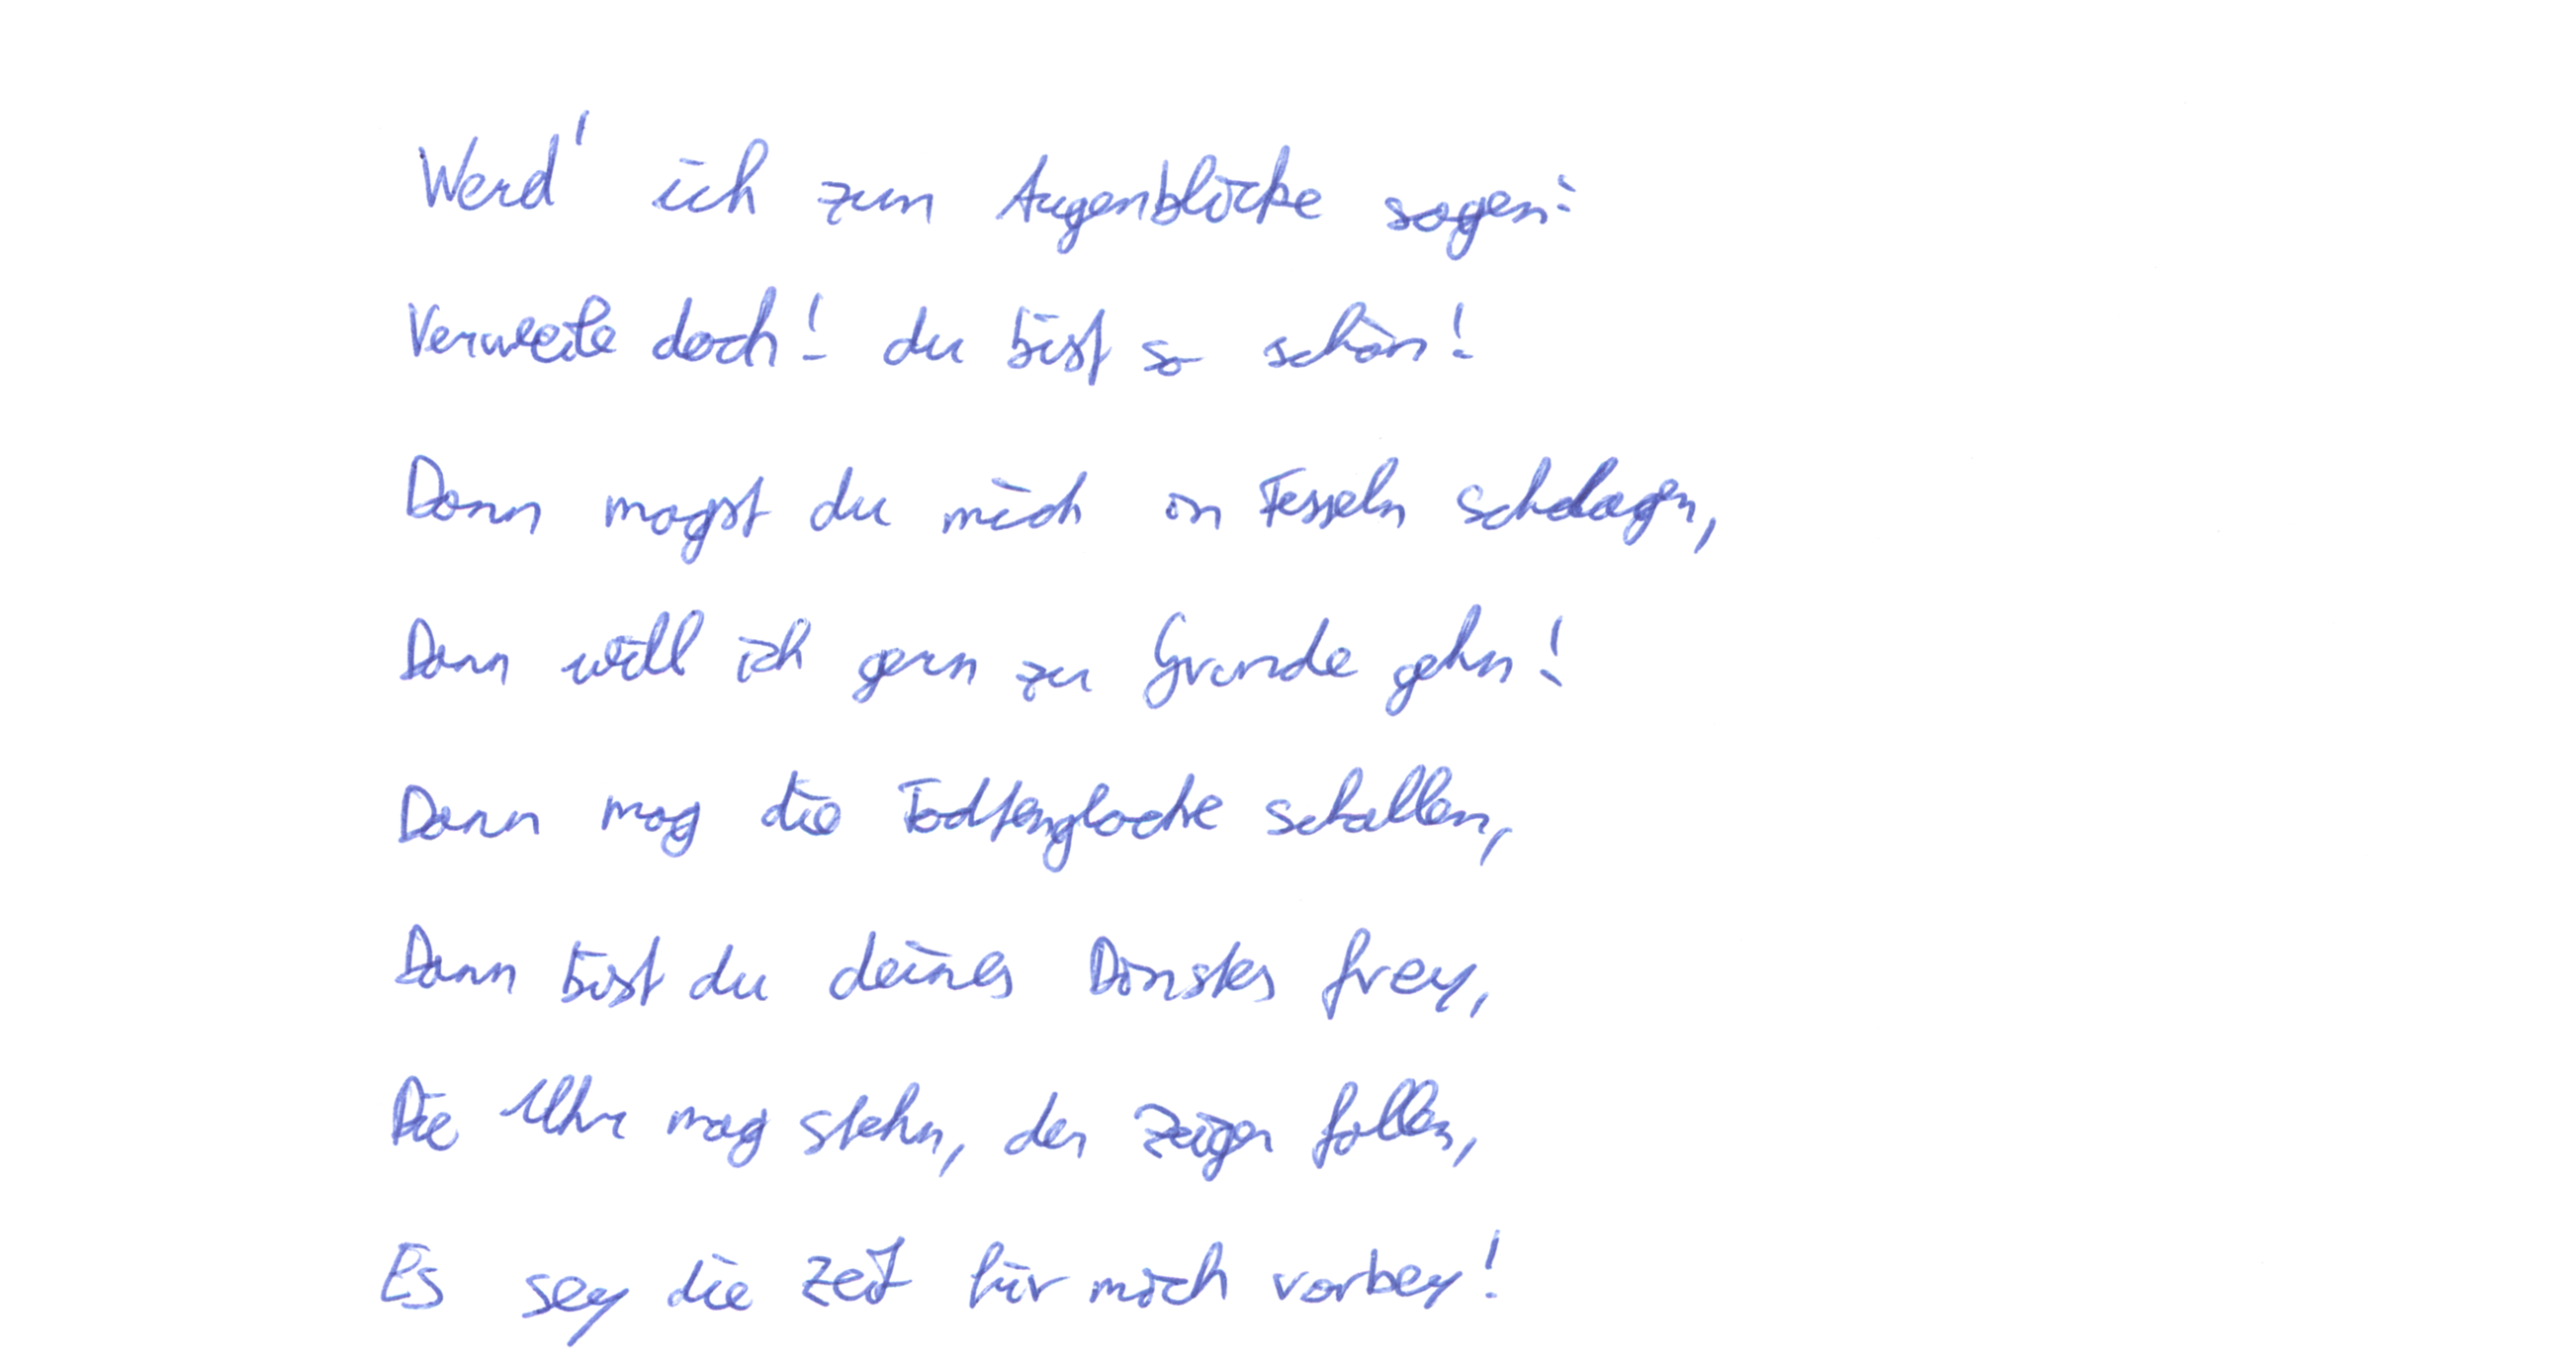 Werd' ich zum Augenblicke sagen:
Verweile doch! du bist so schön!
Dann magst du mich in Fesseln schlagen,
Dann will ich gern zu Grunde gehn!
Dann mag die Todtenglocke schallen,
Dann bist du deines Dinstes frey,
Die Uhr mag stehn, der Zeiger fallen,
Es sey die Zeit für mich vorbey!